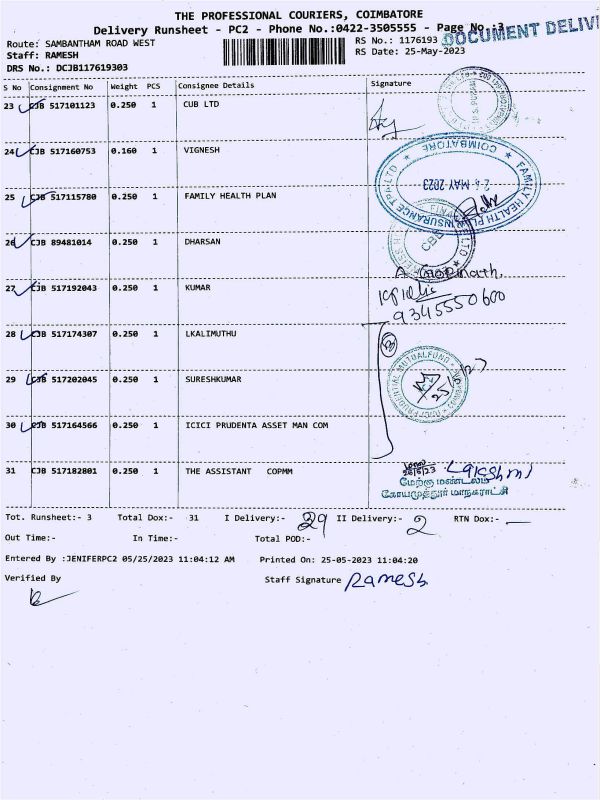 THE PROFESSIONAL COURIERS, COIMBATORE
Delivery Runsheet - PC2 - Phone No.:0422-3505555 - Page No.:3
DOCUMENT DELIV
Route: SAMBANTHAM ROAD WEST
RS No.: 1176193
Staff: RAMESH
RS Date: 25-May-2023
DRS No.: DCJB117619303
S No Consignment No Weight PCS Consignee Details Signature
23 CJB 517101123 0.250 1 CUB LTD
24 CJB 517160753 0.160 1 VIGNESH
FAMILY HEALTH PLAN INSURANCE TPA LTD
COIMBATORE
24 MAY 2023
25 CJB 517115780 0.250 1 FAMILY HEALTH PLAN
26 CJB 89481014 0.250 1 DHARSAN
CBE
27 CJB 517192043 0.250 1 KUMAR
9345550600
28 CJB 517174307 0.250 1 LKALIMUTHU
29 CJB 517202045 0.250 1 SURESHKUMAR
ICICI PRUDENTIAL MUTUAL FUND
25/5/23
30 CJB 517164566 0.250 1 ICICI PRUDENTA ASSET MAN COM
31 CJB 517182801 0.250 1 THE ASSISTANT COPMM
Lakshmi
மேற்கு மண்டலம்
கோயமுத்தூர் மாநகராட்சி
Tot. Runsheet:- 3 Total Dox:- 31 I Delivery:- 29 II Delivery:- 2 RTN Dox:- —
Out Time:- In Time:- Total POD:-
Entered By :JENIFERPC2 05/25/2023 11:04:12 AM Printed On: 25-05-2023 11:04:20
Verified By Staff Signature Ramesh